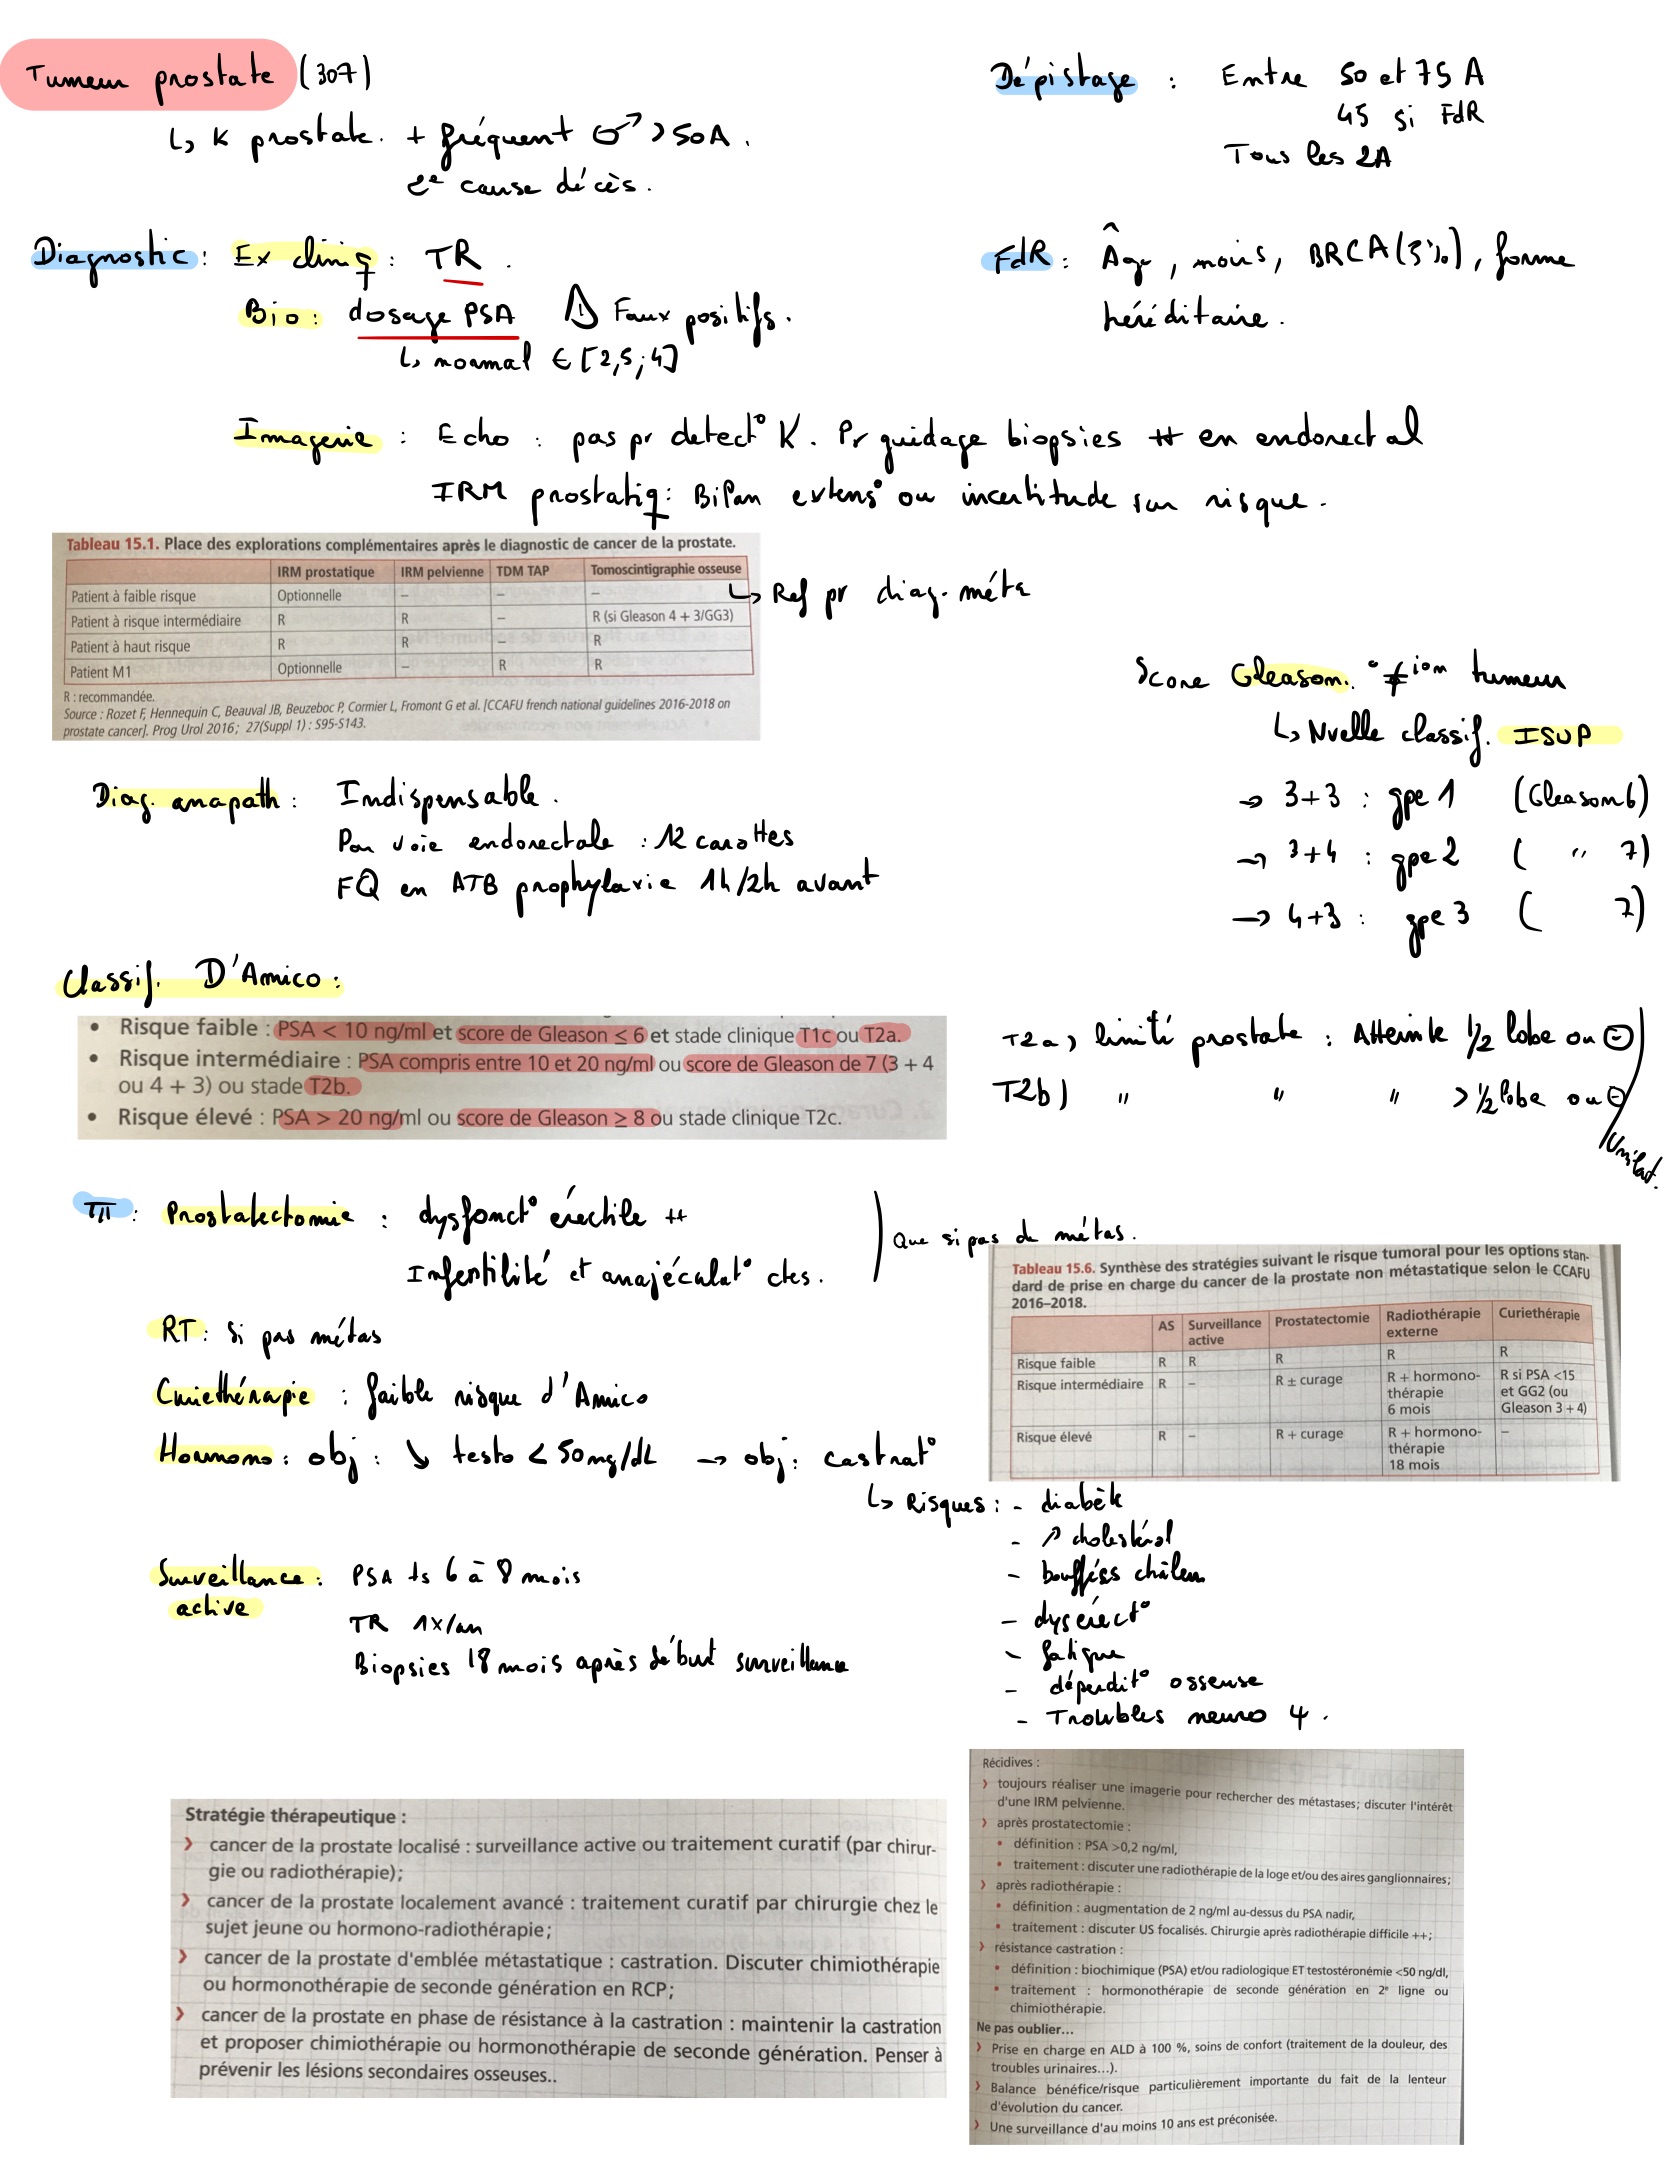 Tumeur prostate (307)
↳ K prostate. + fréquent ♂ > 50A.
2e cause décès.
Dépistage : Entre 50 et 75 A
45 si FdR
Tous les 2A
Diagnostic : Ex cliniq : TR.
Bio : dosage PSA ⚠ Faux positifs.
↳ normal ∈ [2,5 ; 4]
FdR : Âge, noirs, BRCA (5%), forme
héréditaire.
Imagerie : Echo : pas pr detect° K. Pr guidage biopsies ++ en endorectal
IRM prostatiq : Bilan extens° ou incertitude sur risque.
Tableau 15.1. Place des explorations complémentaires après le diagnostic de cancer de la prostate.
IRM prostatique IRM pelvienne TDM TAP Tomoscintigraphie osseuse
Patient à faible risque Optionnelle – – –
Patient à risque intermédiaire R R – R (si Gleason 4 + 3/GG3)
Patient à haut risque R R – R
Patient M1 Optionnelle – R R
R : recommandée.
Source : Rozet F, Hennequin C, Beauval JB, Beuzeboc P, Cormier L, Fromont G et al. [CCAFU french national guidelines 2016-2018 on
prostate cancer]. Prog Urol 2016; 27(Suppl 1) : S95-S143.
↳ Ref pr diag. méta
Score Gleason : ° ≠ion tumeur
↳ Nvelle classif. ISUP
→ 3+3 : gpe 1 (Gleason 6)
→ 3+4 : gpe 2 ( " 7)
→ 4+3 : gpe 3 ( 7)
Diag. anapath : Indispensable.
Par voie endorectale : 12 carottes
FQ en ATB prophylaxie 1h/2h avant
Classif. D'Amico :
• Risque faible : PSA < 10 ng/ml et score de Gleason ≤ 6 et stade clinique T1c ou T2a.
• Risque intermédiaire : PSA compris entre 10 et 20 ng/ml ou score de Gleason de 7 (3 + 4
ou 4 + 3) ou stade T2b.
• Risque élevé : PSA > 20 ng/ml ou score de Gleason ≥ 8 ou stade clinique T2c.
T2a) limité prostate : Atteinte 1/2 lobe ou ⊖
T2b) " " " > 1/2 lobe ou ⊖
Unilat.
TTT : Prostatectomie : dysfonct° érectile ++
Infertilité et anajéculat° ctes.
Que si pas de métas.
RT : Si pas métas
Curiethérapie : faible risque d'Amico
Hormono : obj : ↘ testo < 50 mg/dL → obj : castrat°
Tableau 15.6. Synthèse des stratégies suivant le risque tumoral pour les options stan-
dard de prise en charge du cancer de la prostate non métastatique selon le CCAFU
2016–2018.
AS Surveillance active Prostatectomie Radiothérapie externe Curiethérapie
Risque faible R R R R R
Risque intermédiaire R – R ± curage R + hormono-thérapie 6 mois R si PSA <15 et GG2 (ou Gleason 3 + 4)
Risque élevé R – R + curage R + hormono-thérapie 18 mois –
↳ Risques : - diabète
- ↗ cholestérol
- bouffées chaleur
- dysérect°
- fatigue
- déperdit° osseuse
- Troubles neuro ψ.
Surveillance active : PSA ts 6 à 8 mois
TR 1x/an
Biopsies 18 mois après début surveillance
Stratégie thérapeutique :
› cancer de la prostate localisé : surveillance active ou traitement curatif (par chirur-
gie ou radiothérapie);
› cancer de la prostate localement avancé : traitement curatif par chirurgie chez le
sujet jeune ou hormono-radiothérapie;
› cancer de la prostate d'emblée métastatique : castration. Discuter chimiothérapie
ou hormonothérapie de seconde génération en RCP;
› cancer de la prostate en phase de résistance à la castration : maintenir la castration
et proposer chimiothérapie ou hormonothérapie de seconde génération. Penser à
prévenir les lésions secondaires osseuses..
Récidives :
› toujours réaliser une imagerie pour rechercher des métastases; discuter l'intérêt
d'une IRM pelvienne.
› après prostatectomie :
• définition : PSA >0,2 ng/ml,
• traitement : discuter une radiothérapie de la loge et/ou des aires ganglionnaires;
› après radiothérapie :
• définition : augmentation de 2 ng/ml au-dessus du PSA nadir,
• traitement : discuter US focalisés. Chirurgie après radiothérapie difficile ++;
› résistance castration :
• définition : biochimique (PSA) et/ou radiologique ET testostéronémie <50 ng/dl,
• traitement : hormonothérapie de seconde génération en 2e ligne ou
chimiothérapie.
Ne pas oublier...
› Prise en charge en ALD à 100 %, soins de confort (traitement de la douleur, des
troubles urinaires...).
› Balance bénéfice/risque particulièrement importante du fait de la lenteur
d'évolution du cancer.
› Une surveillance d'au moins 10 ans est préconisée.